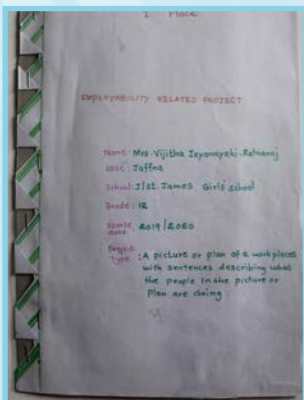 I Place
EMPLOYABILITY RELATED PROJECT
Name: Mrs. Vijitha Jeyanayaki-Ratnaraj
Jaffna
School: J/st. James Girls' school
Grade: 12
2019/2020
Project
Type: A picture or plan of a work places
with sentences describing what
the people in the picture or
Plan are doing.